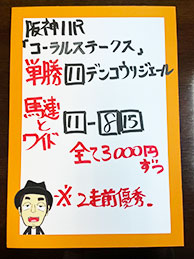 阪神11R
「コーラルステークス」
単勝 11 デンコウリジエール
馬連とワイド 11-8 15
全て3000円ずつ
※2走前優秀。